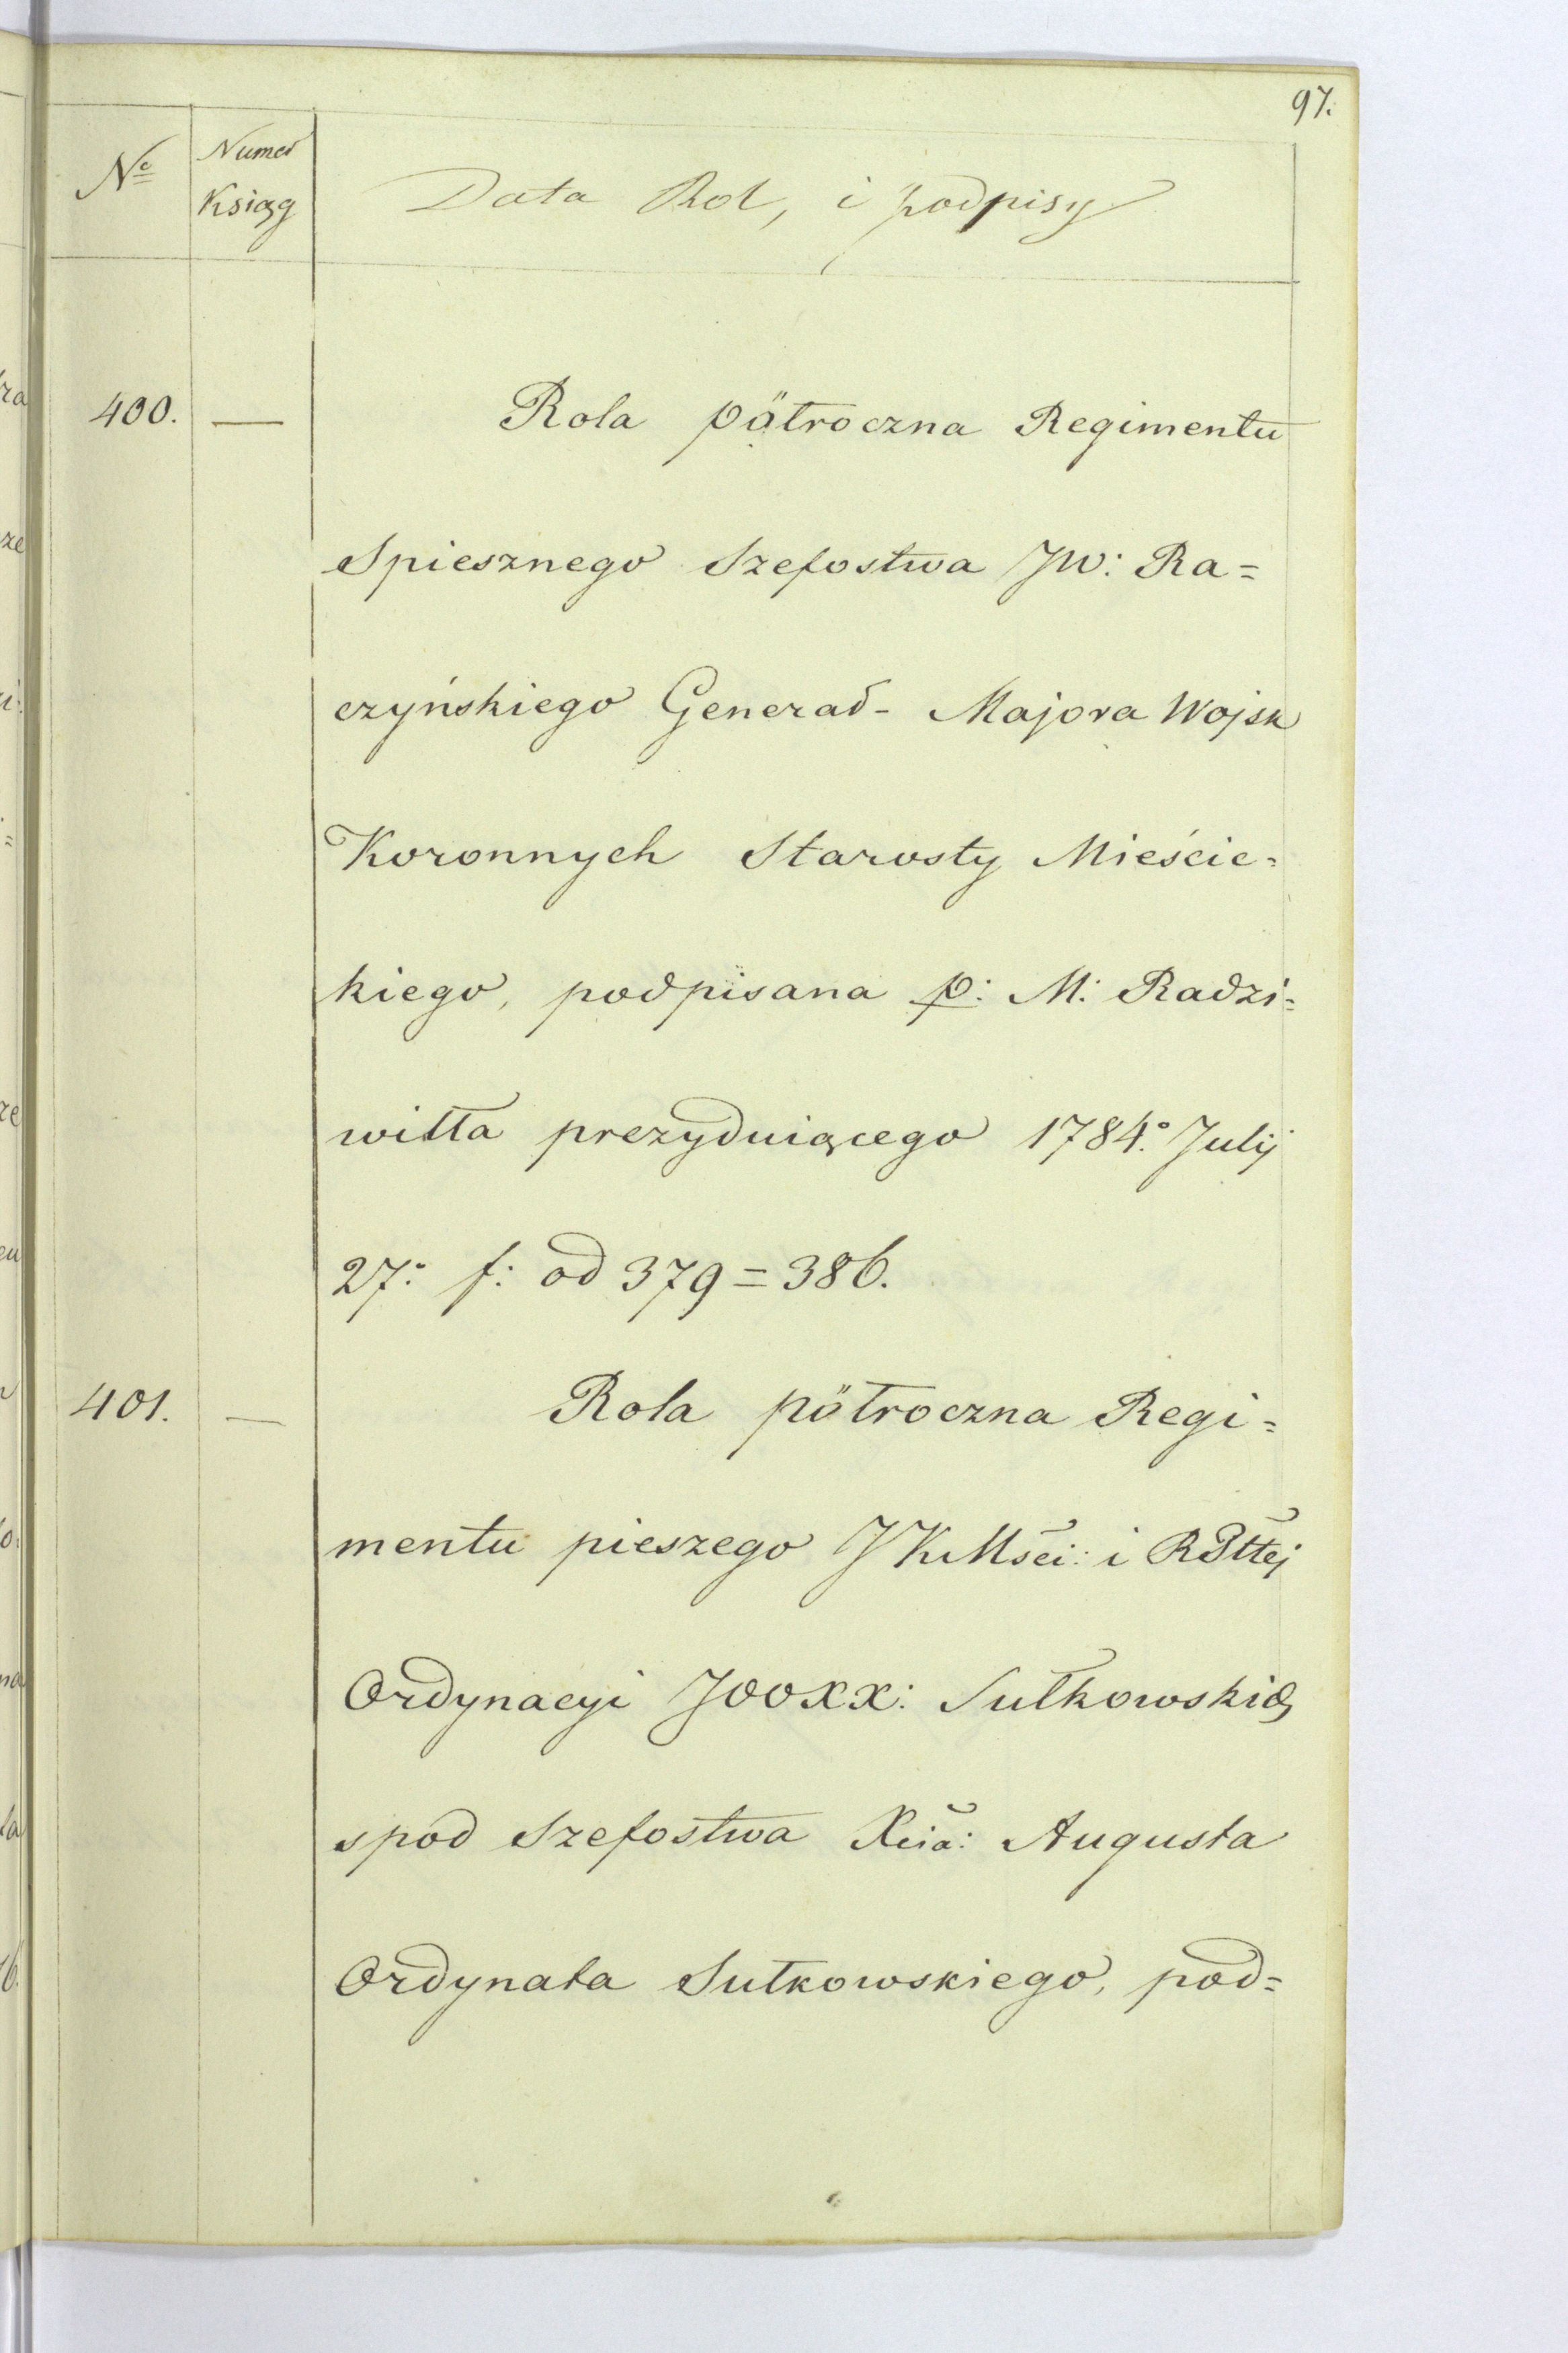 97.
Nº Numer
Ksiąg
Data Rol, i podpisy
400. — Rola pötroczna Regimentu
Spiesznego Szefostwa JW: Ra=
czyńskiego Generał- Majora Wojsk
Koronnych Starosty Mieście=
kiego, podpisana p: M: Radzi=
witta prezyduiącego 1784.° Julij
27: f: od 379=386.
401. — Rola pötroczna Regi=
mentu pieszego JKMści: i RPttej
Ordynacyi JOOXX: Sułkowskich
spod Szefostwa Xcia: Augusta
Ordynata Sułkowskiego, pod=